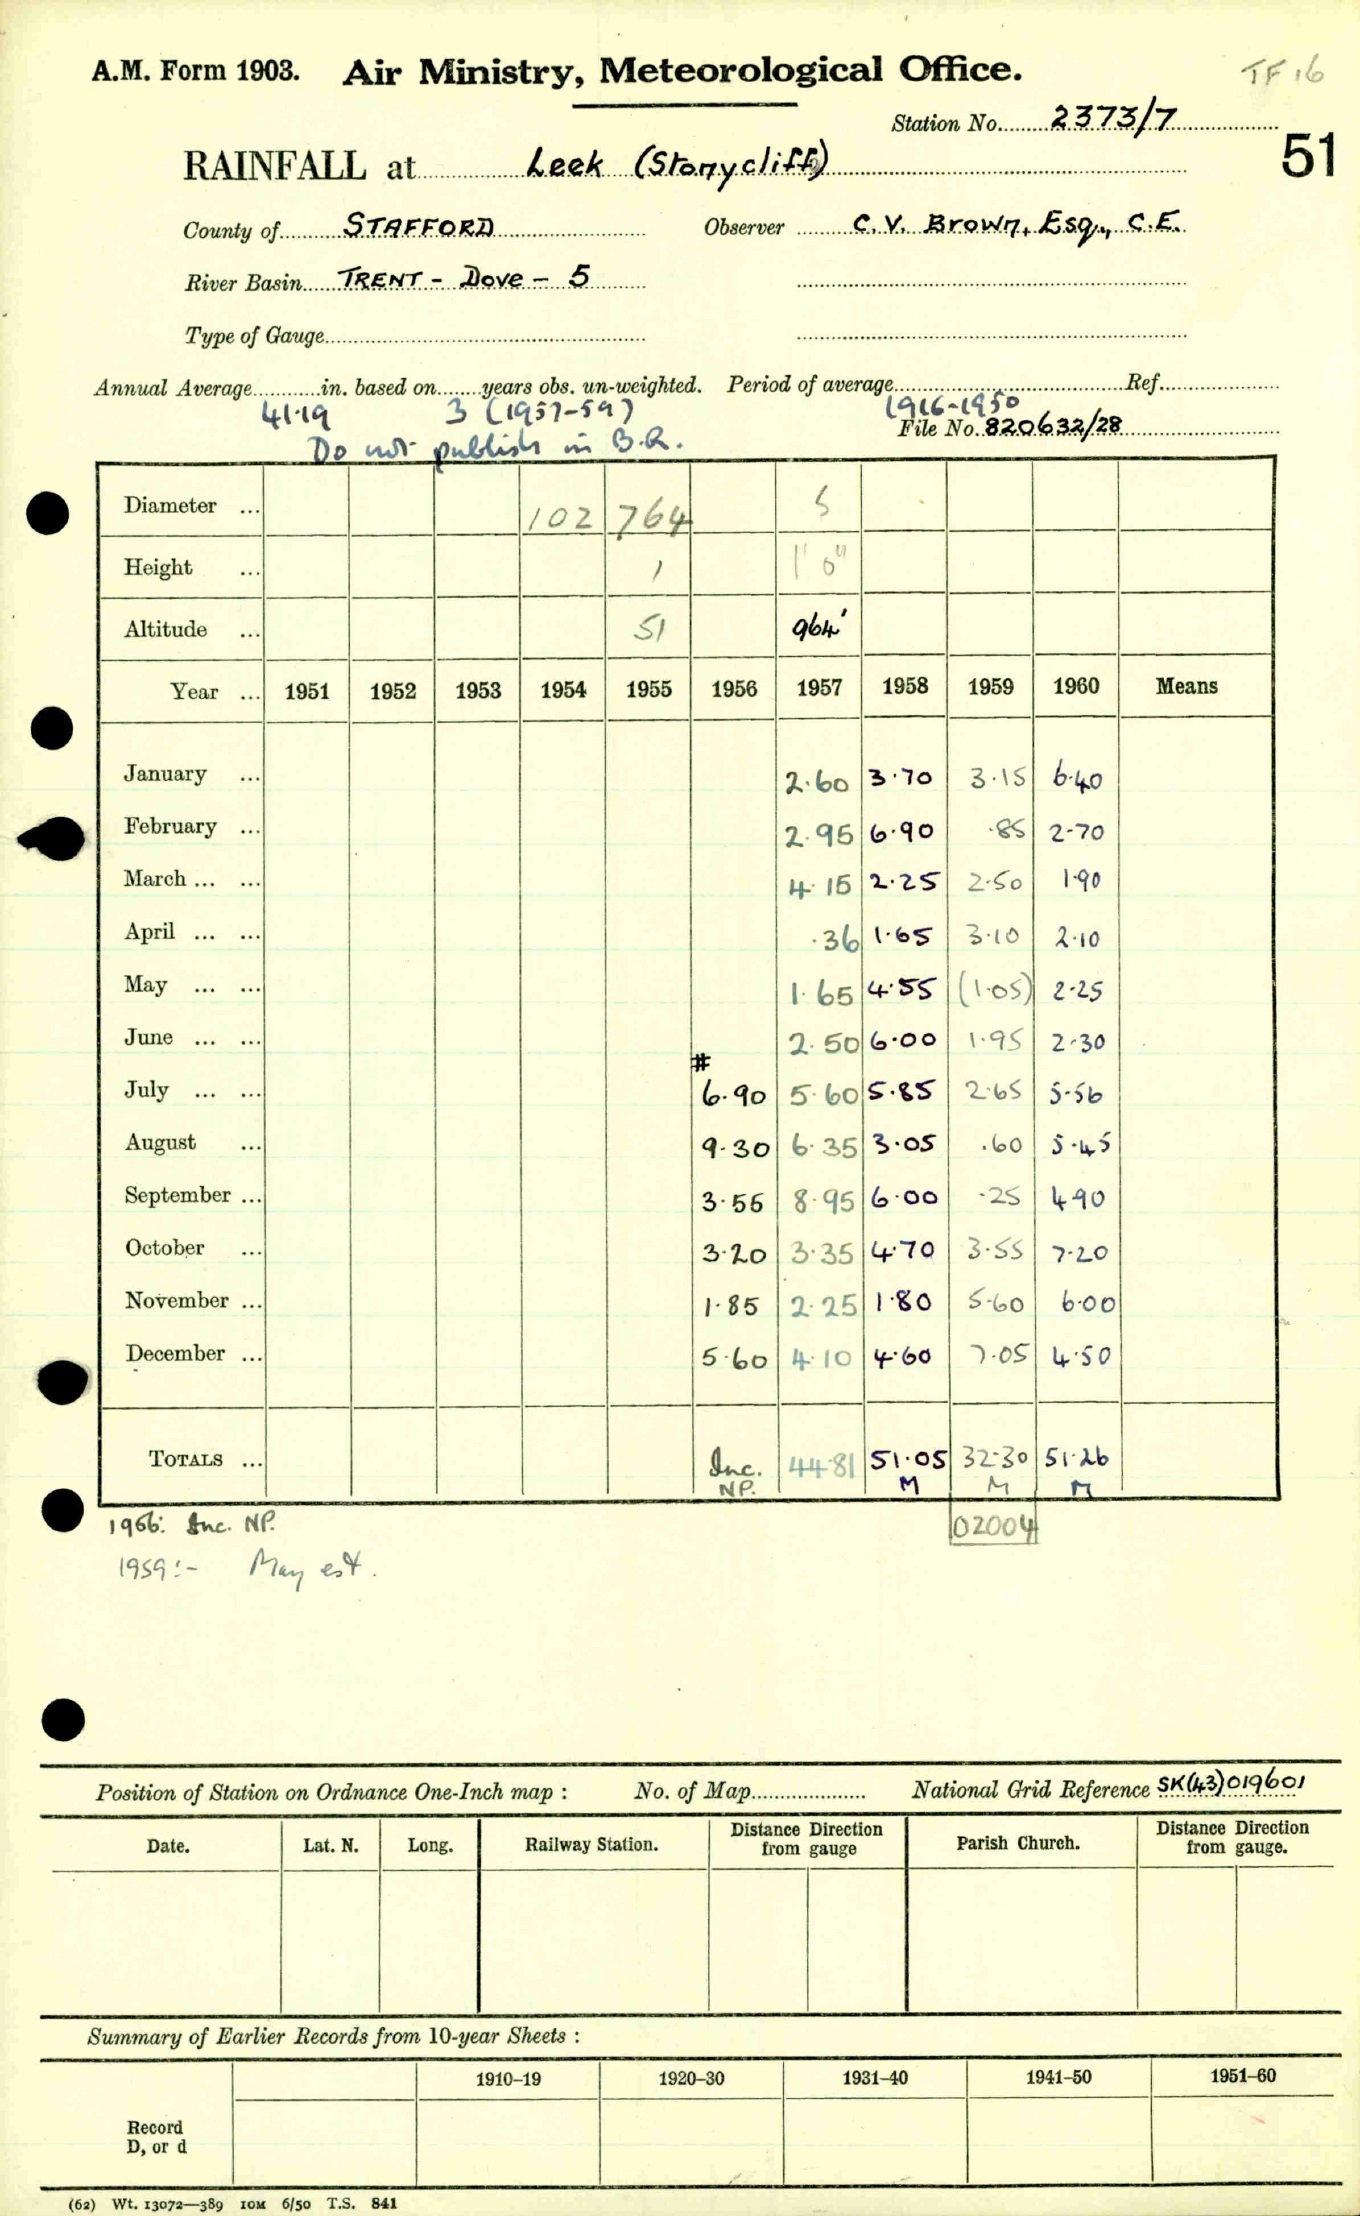 A.M. Form 1903. Air Ministry, Meteorological Office. TF 16
Station No. 2373/7
51
RAINFALL at Leek (Stonycliff)
County of STAFFORD Observer C. V. Brown, Esq., C.E.
River Basin TRENT - Dove - 5
Type of Gauge
Annual Average in. based on years obs. un-weighted. Period of average Ref.
41.19 3 (1957-59) 1916-1950
File No. 820632/28
Do not publish in B.R.
Diameter ... 102 764 5
Height ... 1 1' 0"
Altitude ... 51 964'
Year ... 1951 1952 1953 1954 1955 1956 1957 1958 1959 1960 Means
January ... 2.60 3.70 3.15 6.40
February ... 2.95 6.90 .85 2.70
March ... ... 4.15 2.25 2.50 1.90
April ... ... .36 1.65 3.10 2.10
May ... ... 1.65 4.55 (1.05) 2.25
June ... ... 2.50 6.00 1.95 2.30
#
July ... ... 6.90 5.60 5.85 2.65 5.56
August ... 9.30 6.35 3.05 .60 5.45
September ... 3.55 8.95 6.00 .25 4.90
October ... 3.20 3.35 4.70 3.55 7.20
November ... 1.85 2.25 1.80 5.60 6.00
December ... 5.60 4.10 4.60 7.05 4.50
TOTALS ... Inc. 44.81 51.05 32.30 51.26
NP. M M M
1956: Inc. NP. 02004
1959:- May est.
Position of Station on Ordnance One-Inch map : No. of Map National Grid Reference SK(43)019601
Date. Lat. N. Long. Railway Station. Distance Direction from gauge Parish Church. Distance Direction from gauge.
Summary of Earlier Records from 10-year Sheets :
1910–19 1920–30 1931–40 1941–50 1951–60
Record
D, or d
(62) Wt. 13072—389 10M 6/50 T.S. 841